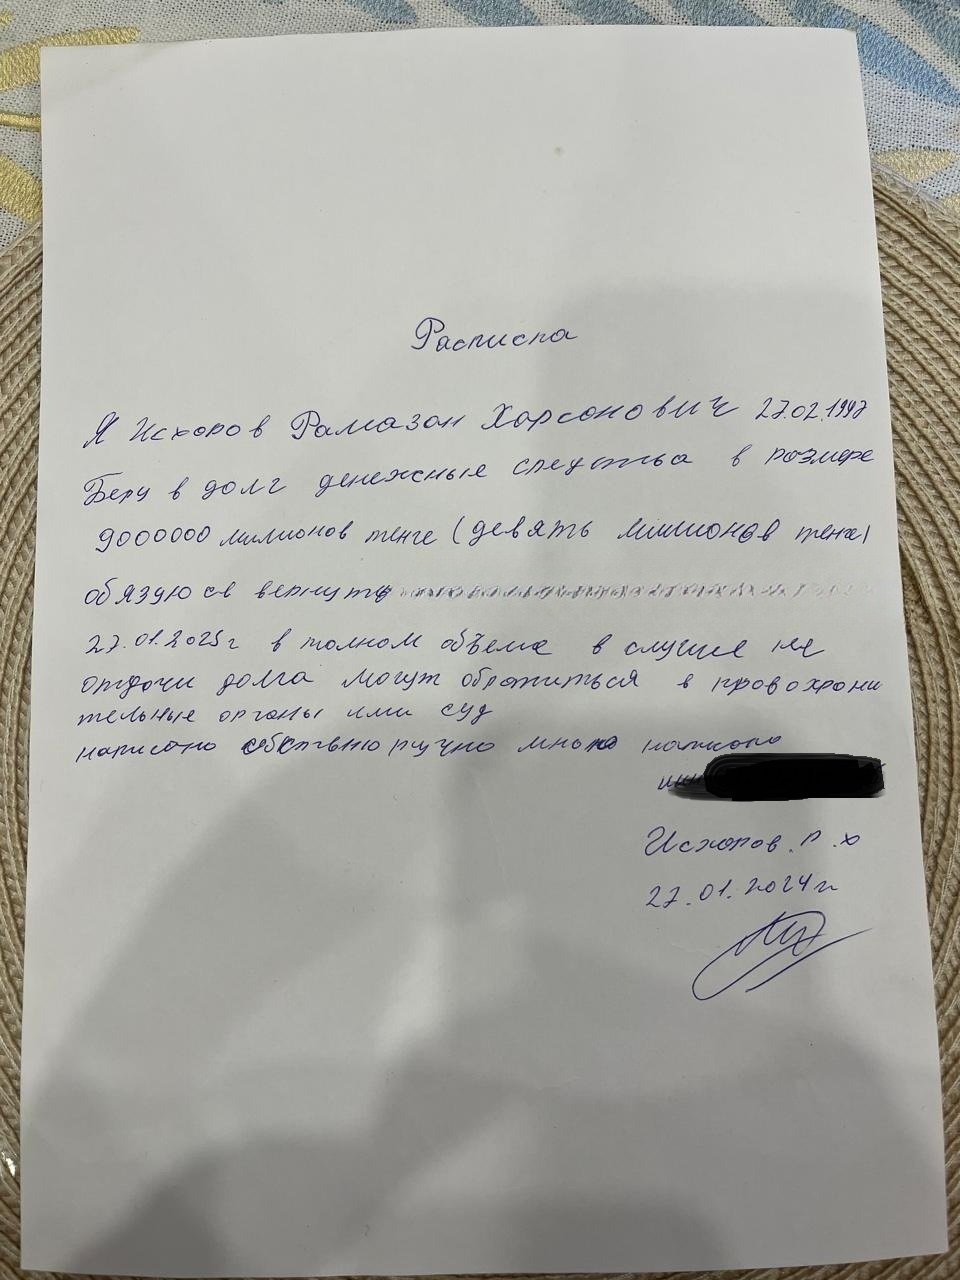 Расписка
Я Исхоров Рамазан Харсонович 27.02.1997
Беру в долг денежные средства в розмере
9000000 миллионов тенге (девять миллионов тенге)
обязуюсь вернуть
27.01.2025г в полном объеме в случие не
отдочи долга могут обротиться в провохрони
тельные органы или суд
написано собственноручно мною
Исхоров.Р.Х
27.01.2024г